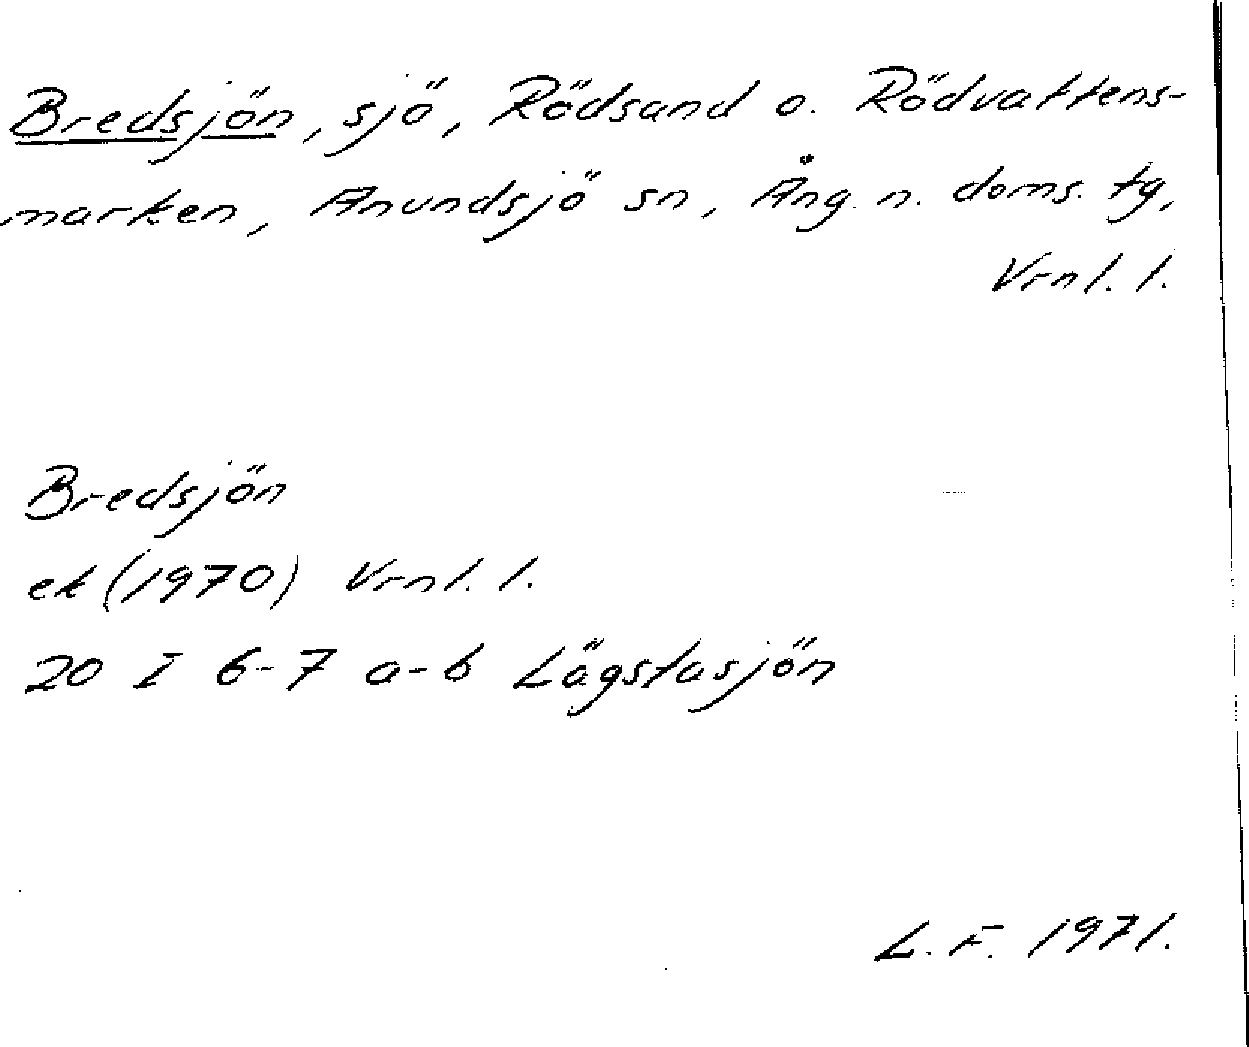 Bredsjön, sjö, Rödsand o. Rödvattens-
marken, Anundsjö sn, Ång. n. doms. tg,
Vrnl. l.
Bredsjön
ek (1970) Vrnl. l.
20 I 6-7 a-b Lägstasjön
L. F. 1971.